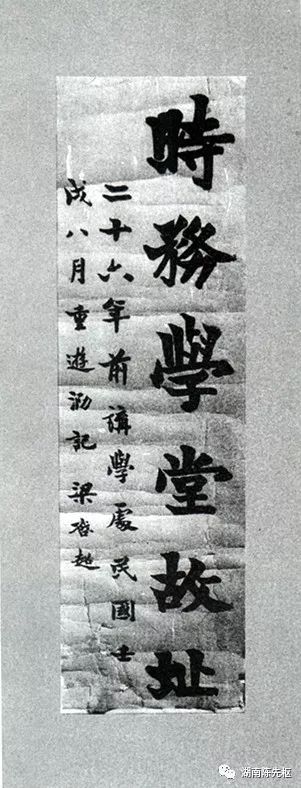 時務學堂故址
二十六年前講學處民國壬
戌八月重遊泐記 梁啓超
湖南陈先枢